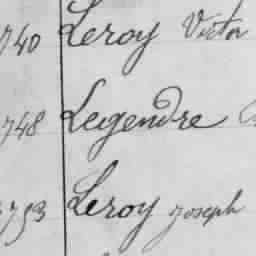 740 Leroy Victor
748 Legendre
753 Leroy joseph